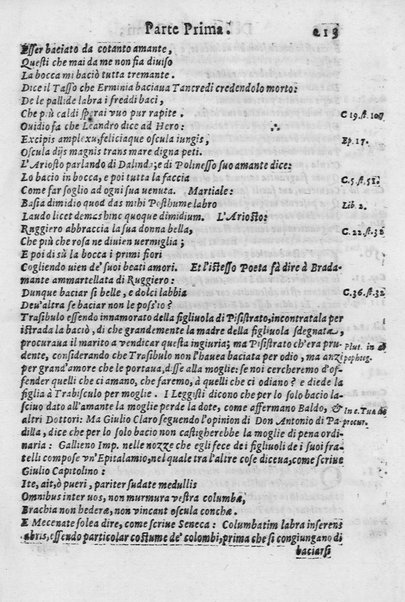 Parte Prima. 213
Esser baciato da cotanto amante,
Questi che mai da me non fia diuiso
La bocca mi baciò tutta tremante.
Dice il Tasso che Erminia baciaua Tancredi credendolo morto:
De le pallide labra i freddi baci,
Che più caldi sperai vuo pur rapite. C 19. st. 107
Ouidio fa che Leandro dice ad Hero:
Excipis amplexu, feliciaque oscula iungis, Ep. 17.
Oscula dijs magnis trans mare digna peti.
L'Ariosto parlando di Dalinda, e di Polinesso suo amante dice:
Lo bacio in bocca, e poi tutta la faccia C.5. st. 51.
Come far soglio ad ogni sua venuta. Martiale:
Basia dimidio quod das mihi Posthume labro Lib 2.
Laudo licet demas hinc quoque dimidium. L'Ariosto:
Ruggiero abbraccia la sua donna bella, C. 22. st. 32
Che più che rosa ne diuien vermiglia;
E poi di sù la bocca i primi fiori
Cogliendo uien de' suoi beati amori. Et l'istesso Poeta fà dire à Brada-
mante ammartellata di Ruggiero:
Dunque baciar sì belle, e dolci labbia C.36. st. 32
Deu'altra se baciar non le poss'io?
Trasibulo essendo innamorato della figliuola di Pisistrato, incontratala per
istrada la baciò, di che grandemente la madre della figliuola sdegnata,
procuraua il marito a vendicar questa ingiuria; ma Pisistrato ch'era pru- Plut. in a
dente, considerando che Trasibulo non l'hauea baciata per odio, ma anzi pophteg.
per grand'amore che le portaua, disse alla moglie: se noi cercheremo d'of-
fender quelli che ci amano, che faremo, à quelli che ci odiano? e diede la
figlia à Trabisculo per moglie. I Leggisti dicono che per lo solo bacio la-
sciuo dato all'amante la moglie perde la dote, come affermano Baldo, & In c. Tua de
altri Dottori: Ma Giulio Claro seguendo l'opinion di Don Antonio di Pa- procur.
dilla, dice che per lo solo bacio non castigherebbe la moglie di pena ordi-
naria: Gallieno Imp. nelle nozze che egli fece de i figliuoli de i suoi fra-
telli compose vn'Epitalamio, nel quale tra l'altre cose diceua, come scriue
Giulio Capitolino:
Ite, ait, ò pueri, pariter sudate medullis
Omnibus inter uos, non murmura vestra columbæ,
Brachia non hederæ, non vincant oscula conchæ.
E Mecenate solea dire, come scriue Seneca: Columbatim labra inserens
labris, essendo particolar costume de' colombi, prima che si congiungano di
baciarsi